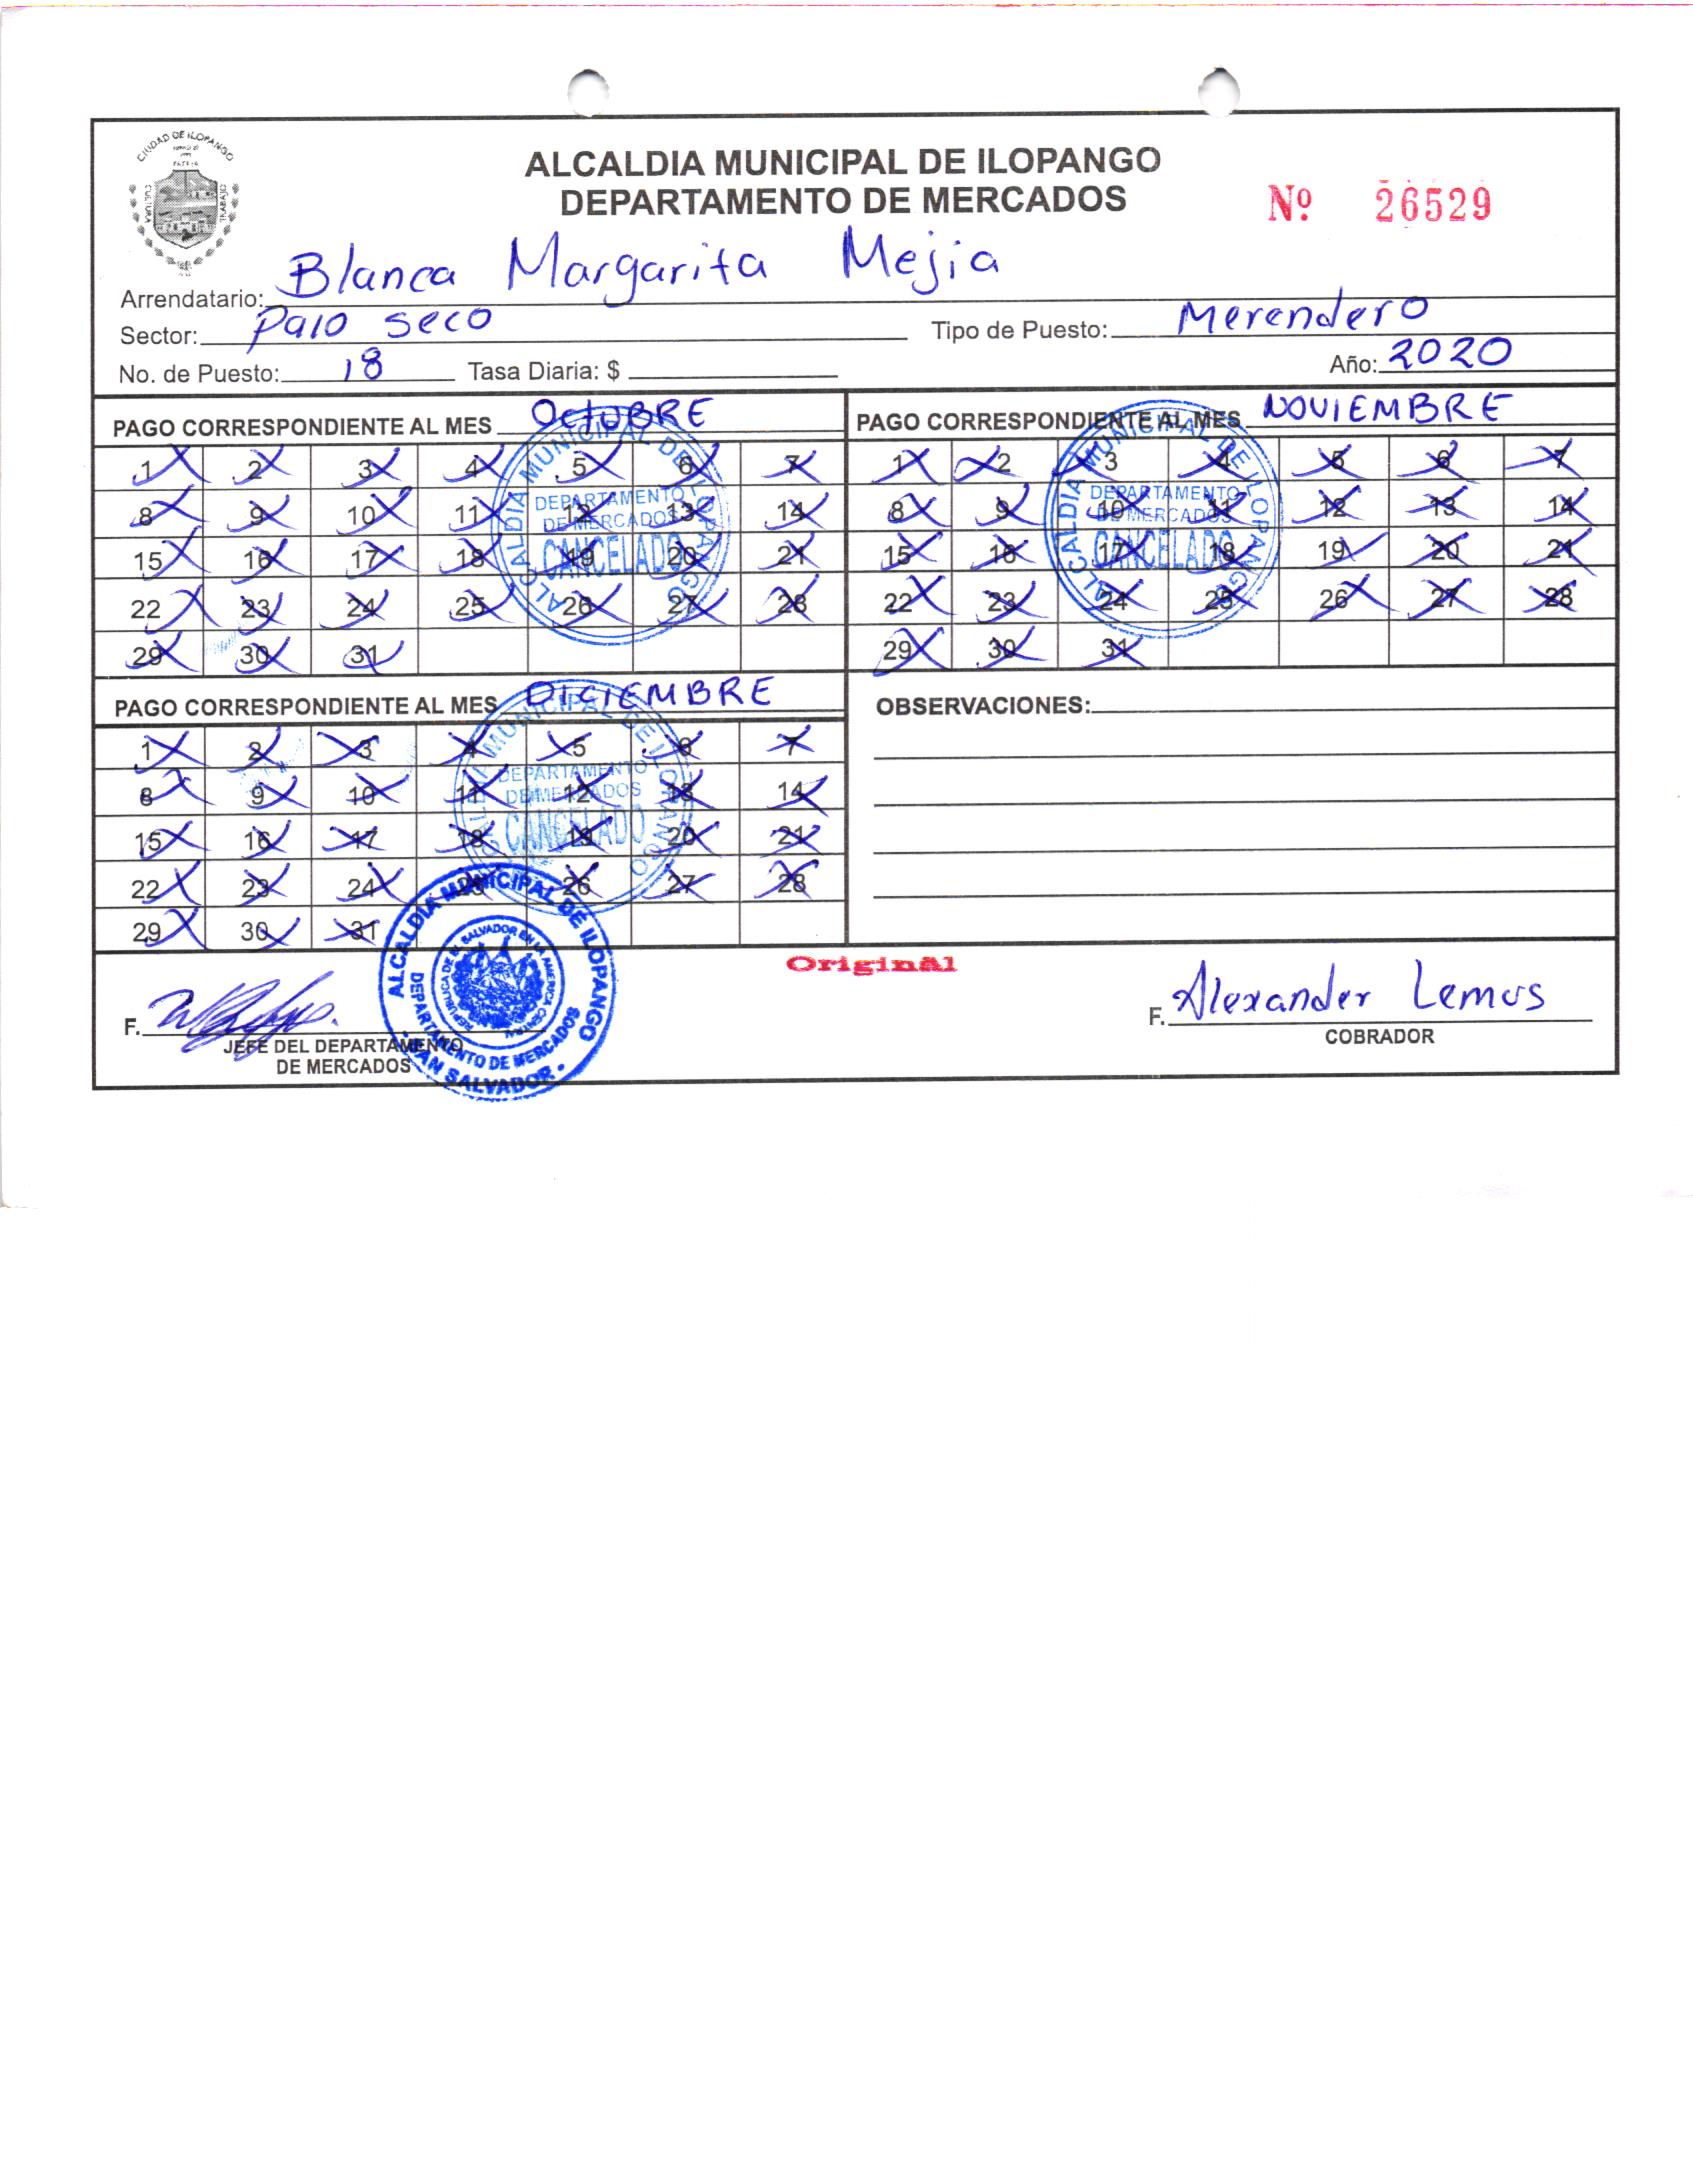 CIUDAD DE ILOPANGO
CULTURA
TRABAJO
ALCALDIA MUNICIPAL DE ILOPANGO
DEPARTAMENTO DE MERCADOS
Nº 26529
Arrendatario: Blanca Margarita Mejia
Sector: Palo seco Tipo de Puesto: Merendero
No. de Puesto: 18 Tasa Diaria: $ Año: 2020
PAGO CORRESPONDIENTE AL MES OctUBRE
1 2 3 4 5 6 7
8 9 10 11 12 13 14
15 16 17 18 19 20 21
22 23 24 25 26 27 28
29 30 31
ALCALDIA MUNICIPAL DE ILOPANGO
DEPARTAMENTO
DE MERCADOS
CANCELADO
PAGO CORRESPONDIENTE AL MES NOVIEMBRE
1 2 3 4 5 6 7
8 9 10 11 12 13 14
15 16 17 18 19 20 21
22 23 24 25 26 27 28
29 30 31
ALCALDIA MUNICIPAL DE ILOPANGO
DEPARTAMENTO
DE MERCADOS
CANCELADO
PAGO CORRESPONDIENTE AL MES DICIEMBRE
1 2 3 4 5 6 7
8 9 10 11 12 13 14
15 16 17 18 19 20 21
22 23 24 25 26 27 28
29 30 31
ALCALDIA MUNICIPAL DE ILOPANGO
DEPARTAMENTO
DE MERCADOS
CANCELADO
OBSERVACIONES:
Original
F.
JEFE DEL DEPARTAMENTO
DE MERCADOS
ALCALDIA MUNICIPAL DE ILOPANGO
REPUBLICA DE EL SALVADOR EN LA AMERICA CENTRAL
DEPARTAMENTO DE MERCADOS
SAN SALVADOR
F. Alexander Lemus
COBRADOR